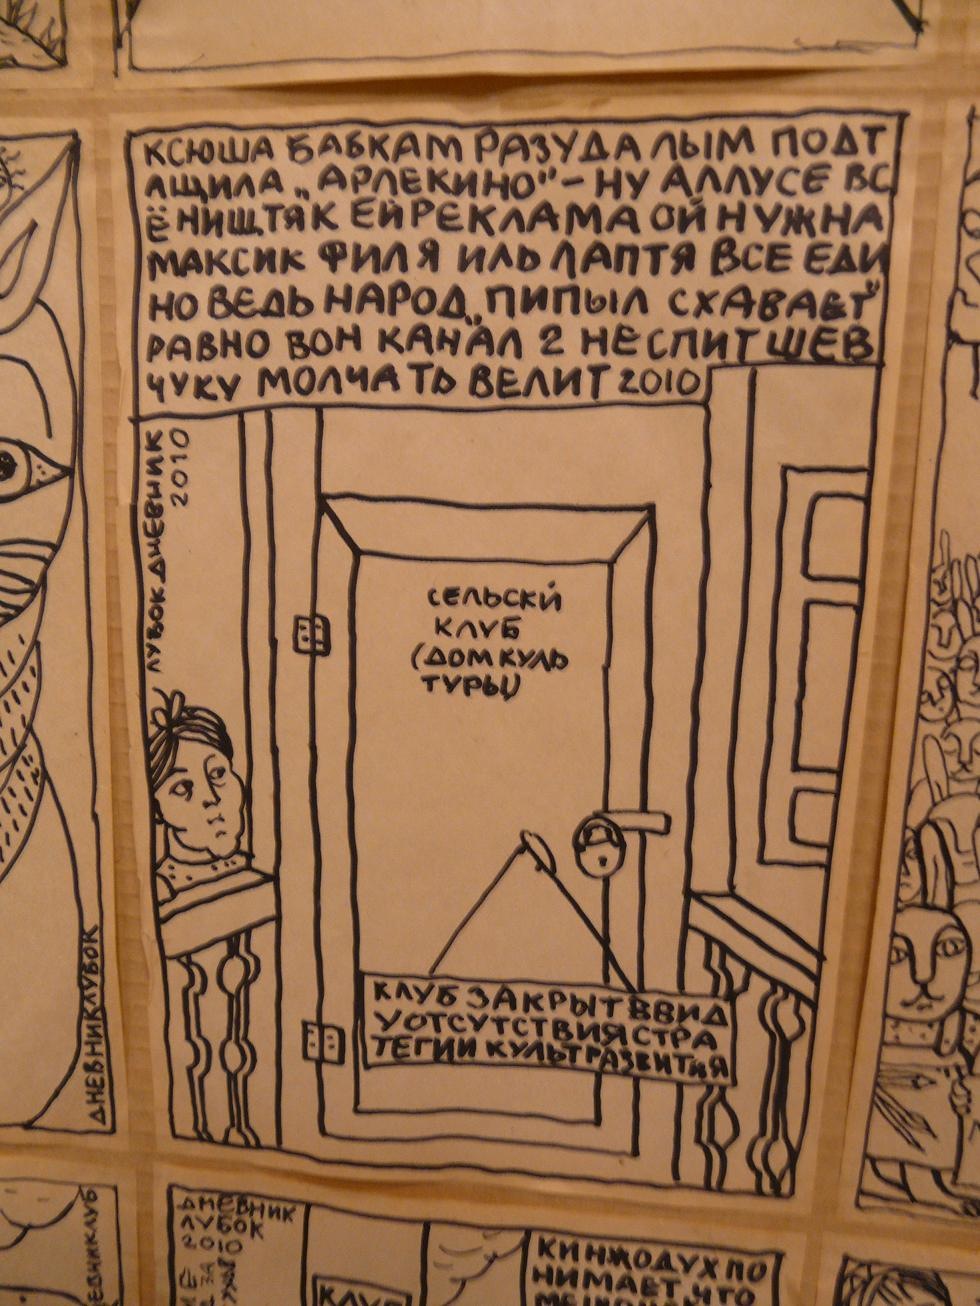 КСЮША БАБКАМ РАЗУДАЛЫМ ПОДТ
АЩИЛА „АРЛЕКИНО" – НУ АЛЛУСЕ ВС
Ё НИШТЯК ЕЙ РЕКЛАМА ОЙ НУЖНА
МАКСИК ФИЛЯ ИЛЬ ЛАПТЯ ВСЕ ЕДИ
НО ВЕДЬ НАРОД „ПИПЫЛ СХАВАЕТ"
РАВНО ВОН КАНАЛ 2 НЕ СПИТ ШЕВ
ЧУКУ МОЛЧАТЬ ВЕЛИТ 2010
ЛУБОК ДНЕВНИК
2010
СЕЛЬСКЙ
КЛУБ
(ДОМ КУЛЬ
ТУРЫ)
КЛУБ ЗАКРЫТ ВВИД
У ОТСУТСТВИЯ СТРА
ТЕГИИ КУЛЬТРАЗВИТИЯ
ДНЕВНИК ЛУБОК
ЕВНИК ЛУБ
ДНЕВНИК
ЛУБОК
2010
КЛУБ
КИНЖОДУХ ПО
НИМАЕТ, ЧТО